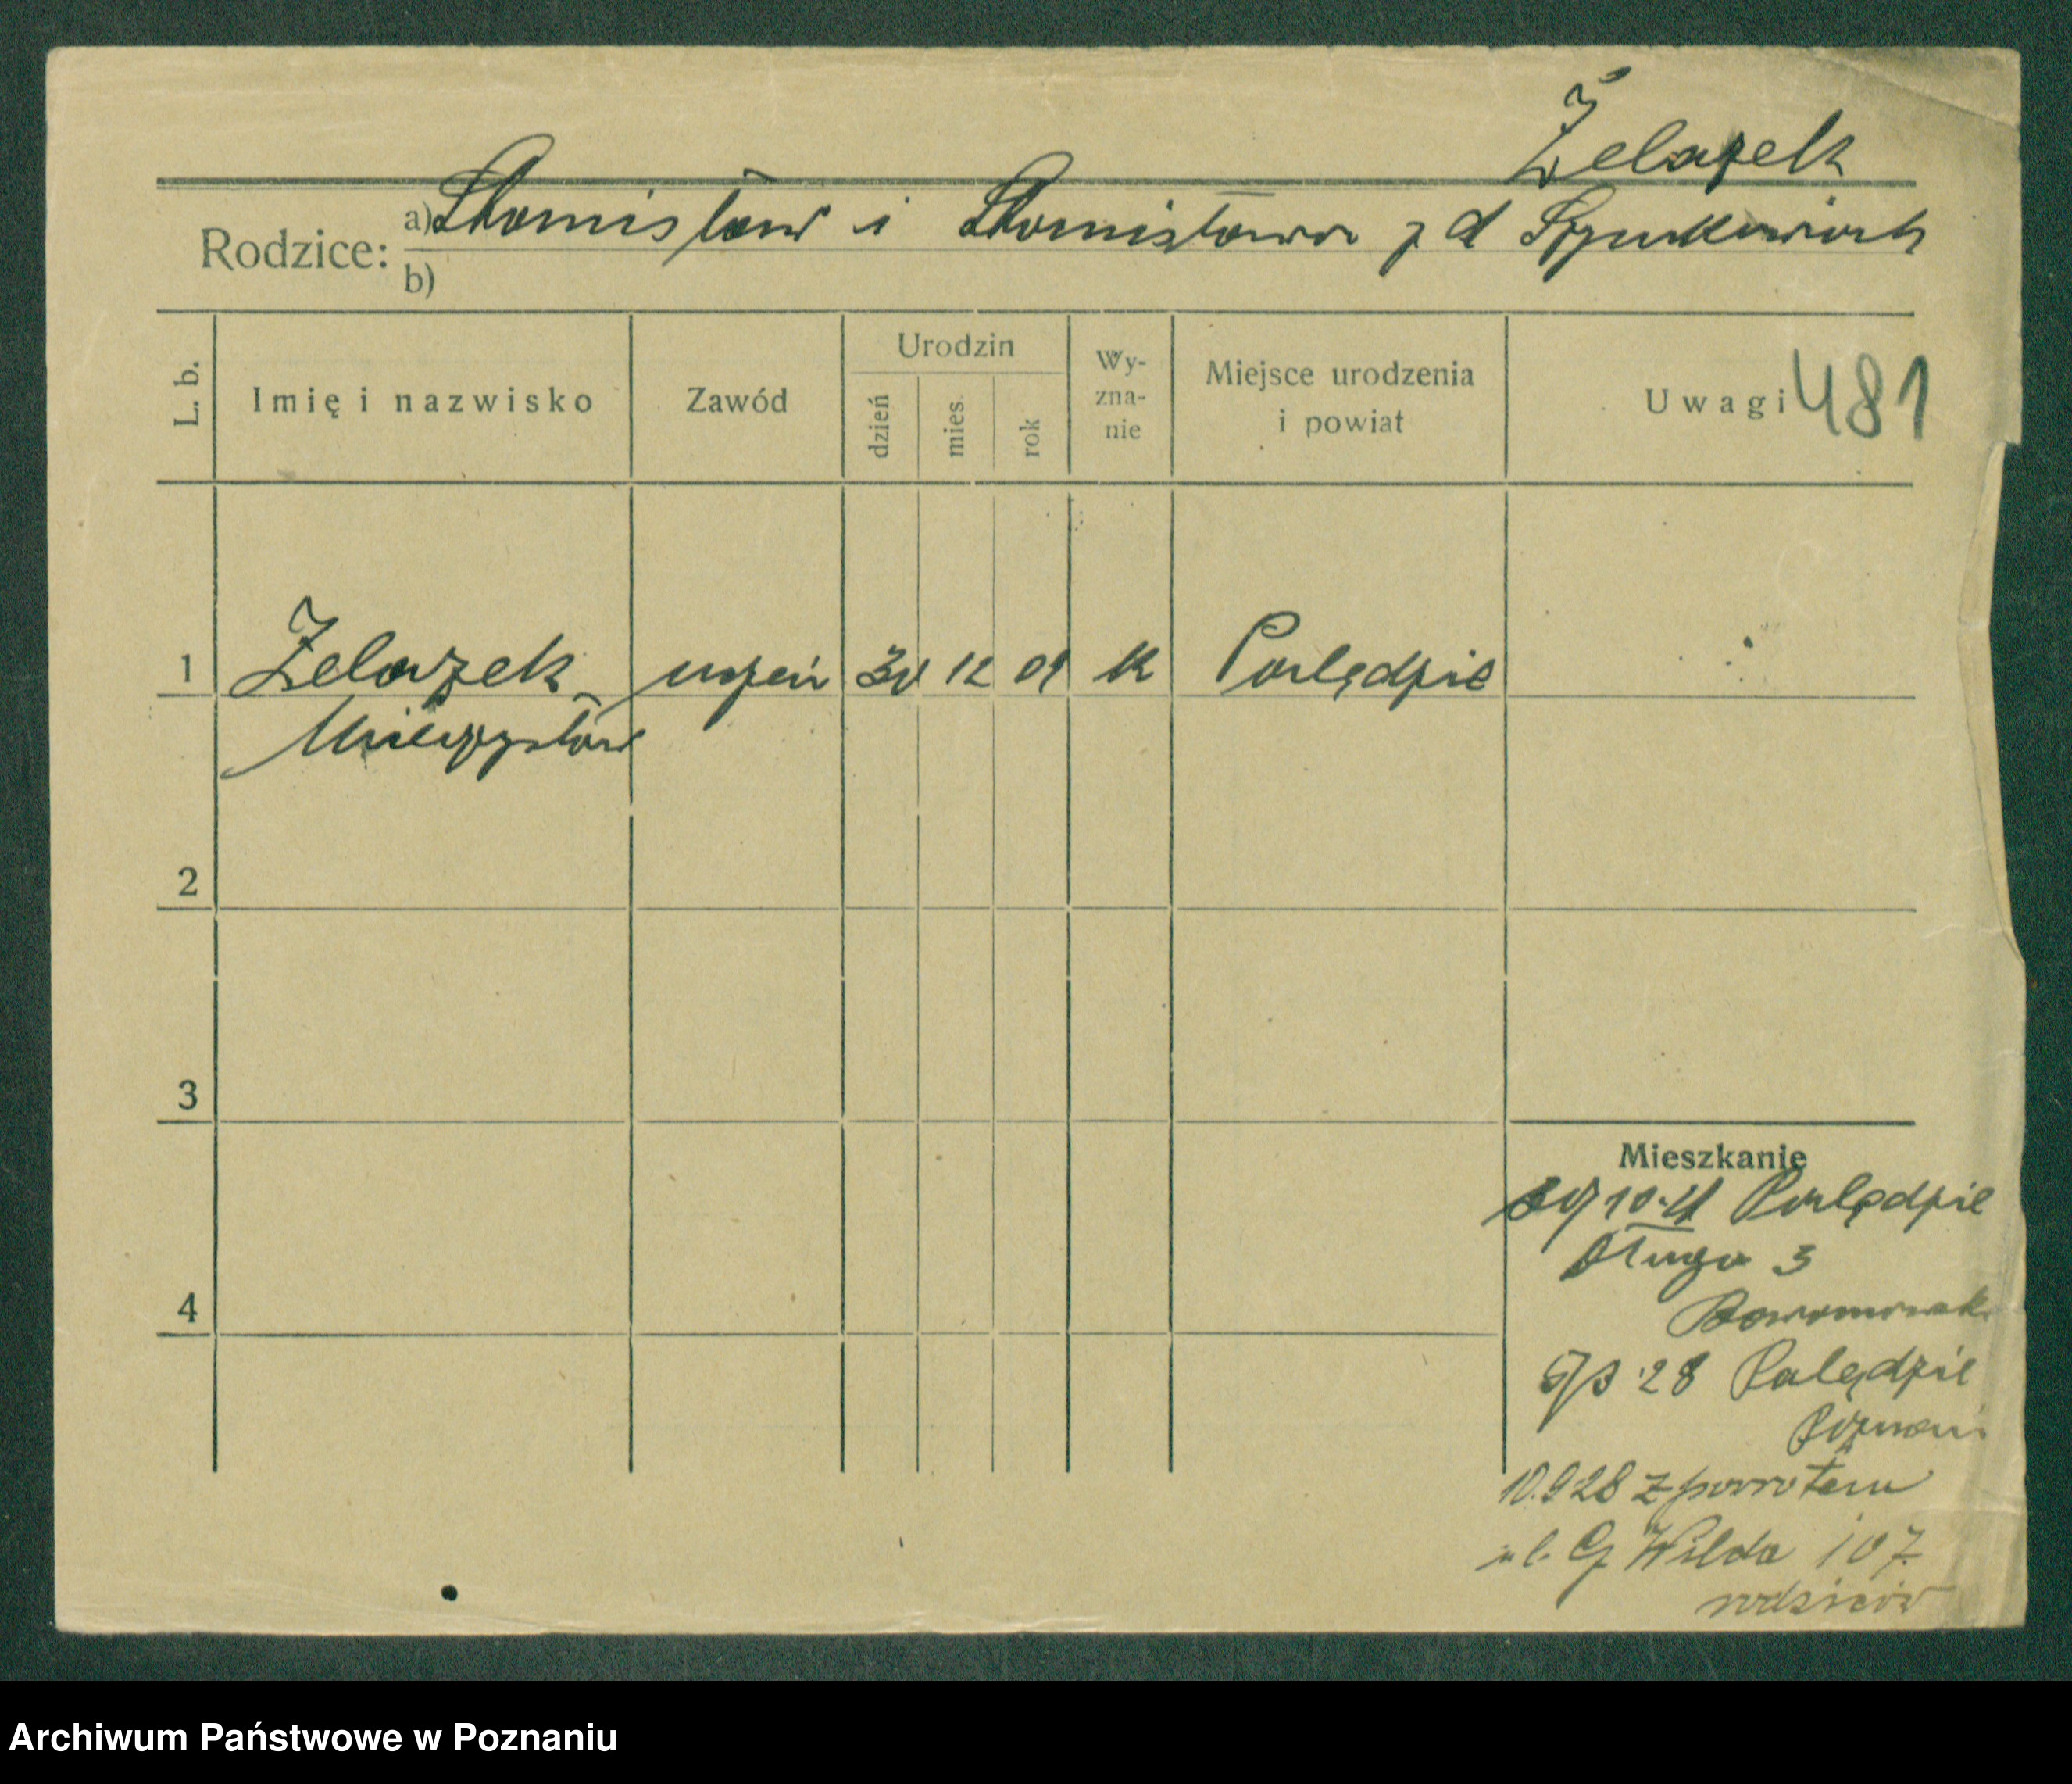 Żelazek
Rodzice: a) Stanisław i Stanisława z d Szymkowiak
b)
L. b. Imię i nazwisko Zawód Urodzin dzień mies. rok Wy-zna-nie Miejsce urodzenia i powiat Uwagi 481
1 Żelazek uczeń 30 12 09 k Palędzie
Mieczysław
2
3
Mieszkanie
Palędzie
Długa 3
4
28 Palędzie
Poznań
10.9.28 z powrotem
ul. G Wilda 107
rodziców
Archiwum Państwowe w Poznaniu